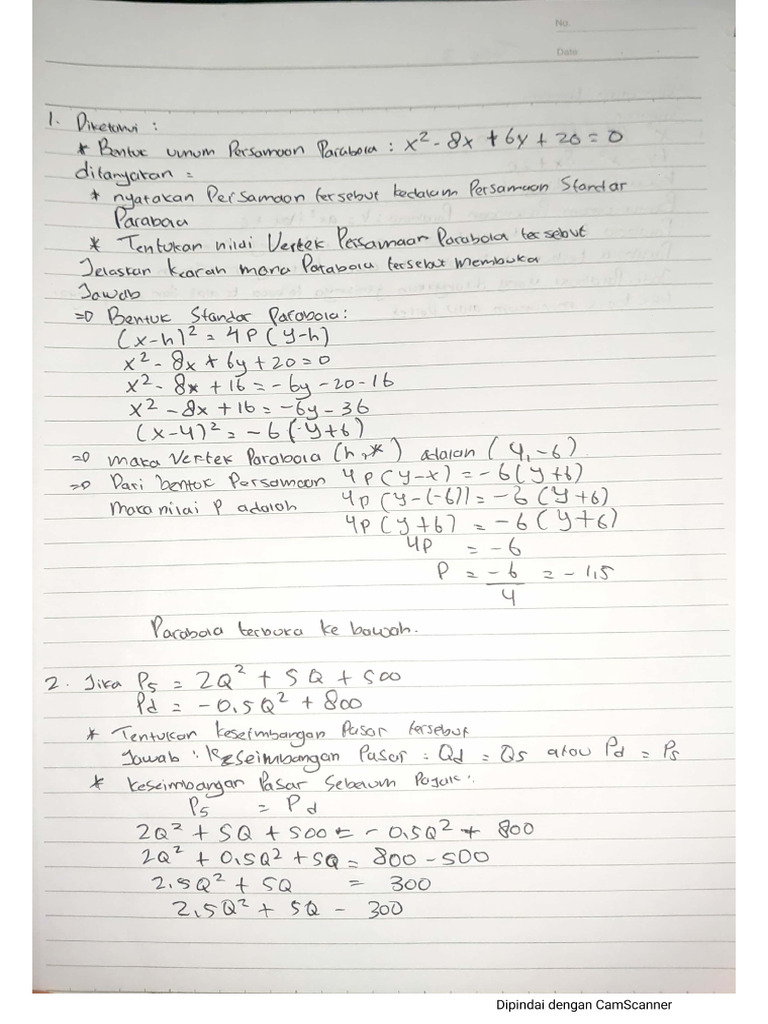 No.
Date
1. Diketahui :
* Bentuk umum Persamaan Parabola : x² - 8x + 6y + 20 = 0
ditanyakan =
* nyatakan Persamaan tersebut kedalam Persamaan Standar
Parabola
* Tentukan nilai Vertek Persamaan Parabola tersebut
Jelaskan kearah mana Parabola tersebut membuka
Jawab
=D Bentuk Standar Parabola:
(x-h)² = 4P(y-h)
x² - 8x + 6y + 20 = 0
x² - 8x + 16 = -6y - 20 - 16
x² - 8x + 16 = -6y - 36
(x-4)² = -6(-y+6)
=D maka Vertek Parabola (h,*) adalah (4,-6)
=D Dari bentuk Persamaan 4P(y-x) = -6(y+6)
Maka nilai P adalah 4p(y-(-6)) = -6(y+6)
4p(y+6) = -6(y+6)
4p = -6
P = -6 = -1,5
4
Parabola terbuka ke bawah.
2. Jika Ps = 2Q² + 5Q + 500
Pd = -0,5Q² + 800
* Tentukan keseimbangan Pasar tersebut
Jawab : Keseimbangan Pasar : Qd = Qs atau Pd = Ps
* keseimbangan Pasar Sebelum Pajak :
Ps = Pd
2Q² + 5Q + 500 = -0,5Q² + 800
2Q² + 0,5Q² + 5Q = 800 - 500
2,5Q² + 5Q = 300
2,5Q² + 5Q - 300
Dipindai dengan CamScanner